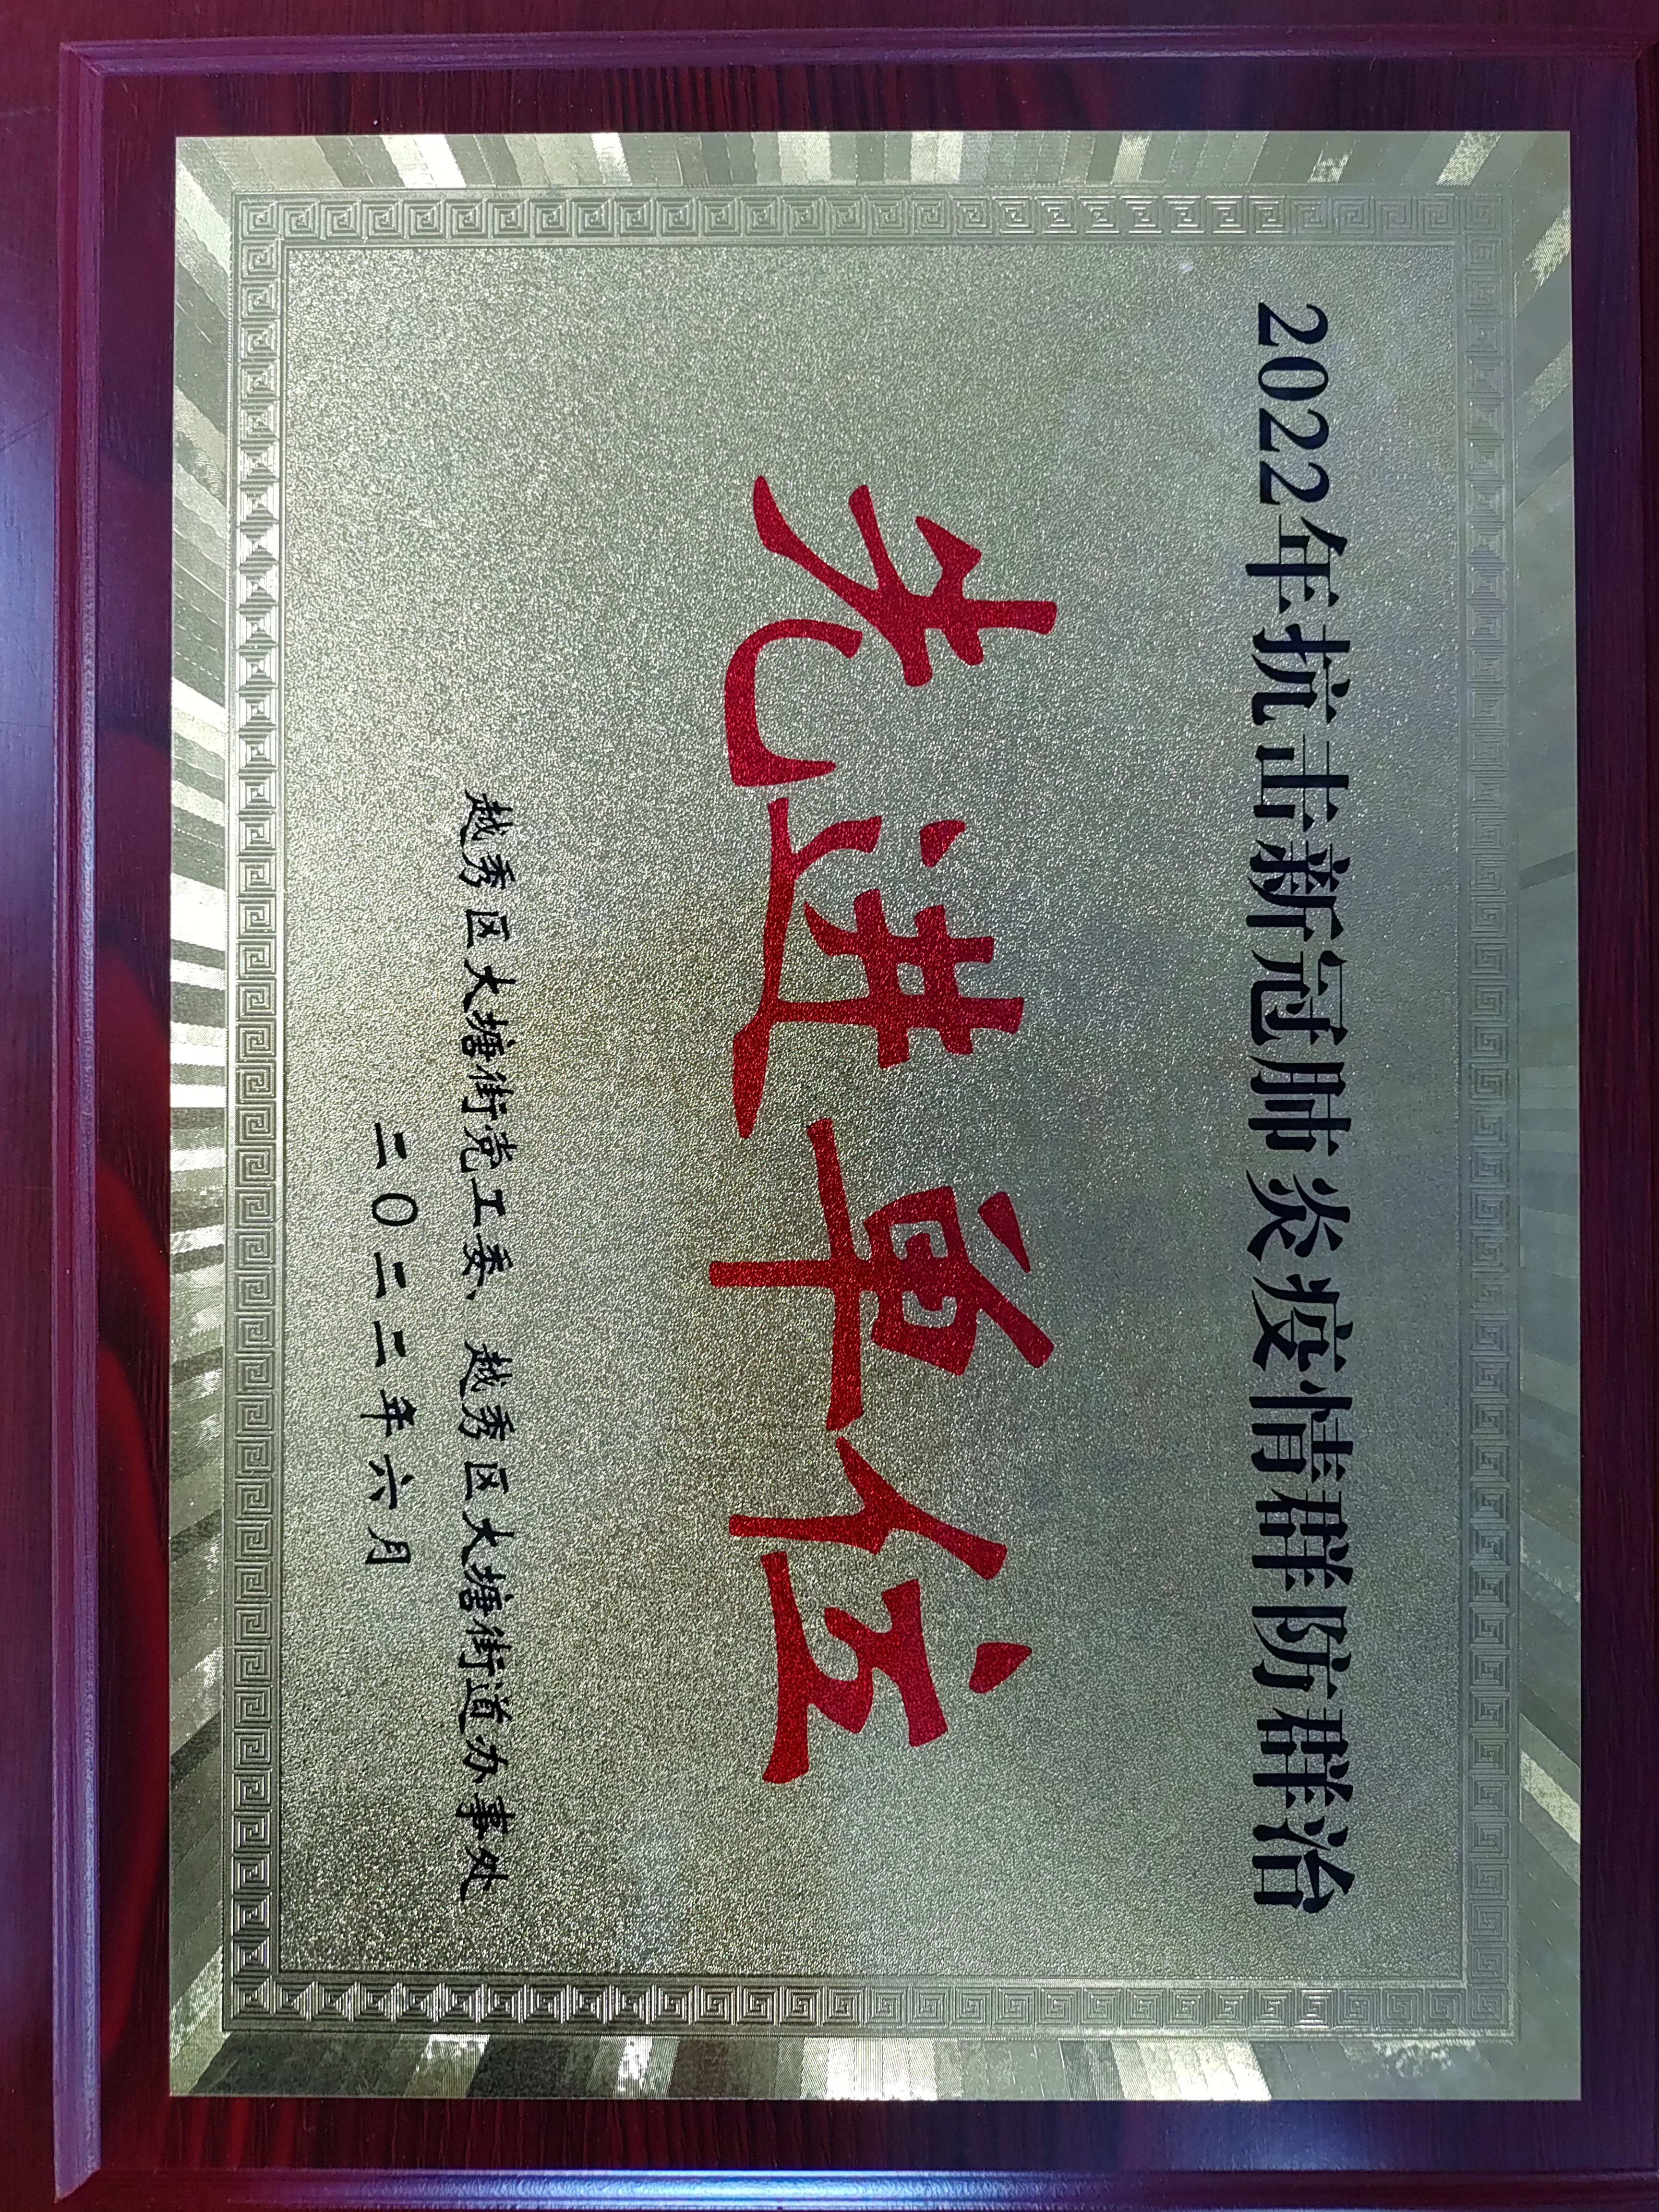 2022年抗击新冠肺炎疫情群防群治
先进单位
越秀区大塘街党工委、越秀区大塘街道办事处
二〇二二年六月